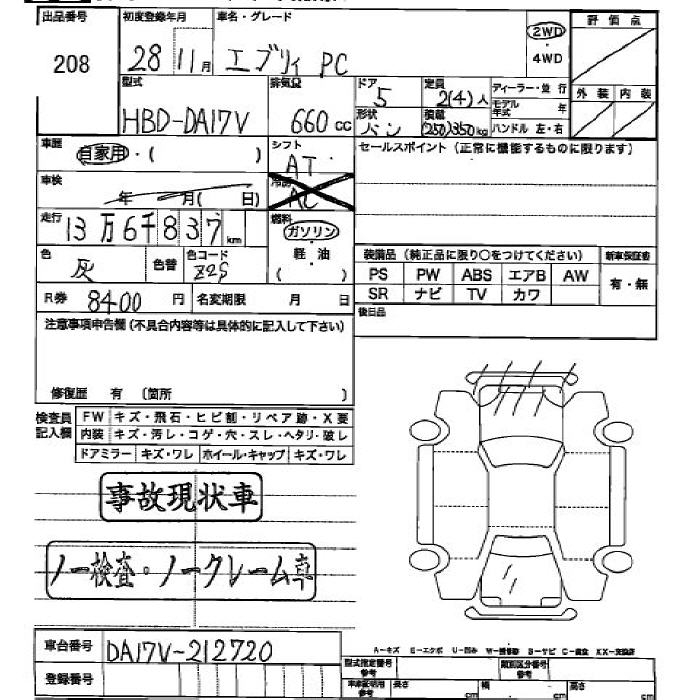 出品番号 初度登録年月 車名・グレード 評価点
208 28 11月 エブリィ PC 2WD・4WD
型式 排気量 ドア 定員 ディーラー・並行 外装 内装
HBD-DA17V 660cc 5 2(4)人 モデル年式 年
形状 バン 積載 (250)350kg ハンドル 左・右
車歴 自家用・( ) シフト AT セールスポイント(正常に機能するものに限ります)
車検 年 月( 日) 冷房 AC
走行 13万6千837km 燃料 ガソリン・軽油( )
色 灰 色替 色コード Z2S 装備品(純正品に限り○をつけてください) 新車保証書
PS PW ABS エアB AW 有・無
R券 8400円 名変期限 月 日 SR ナビ TV カワ
注意事項申告欄(不具合内容等は具体的に記入して下さい) 後日品
修復歴 有 〔箇所 〕
検査員記入欄 FW キズ・飛石・ヒビ割・リペア跡・X要
内装 キズ・汚レ・コゲ・穴・スレ・ヘタリ・破レ
ドアミラー キズ・ワレ ホイール・キャップ キズ・ワレ
事故現状車
ノー検査・ノークレーム車
車台番号 DA17V-212720
A-キズ E-エクボ U-凹み W-補修跡 S-サビ C-腐食 XX-交換済
登録番号 型式指定番号 参考 類別区分番号 参考
車庫証明用 参考 長さ cm 幅 cm 高さ cm